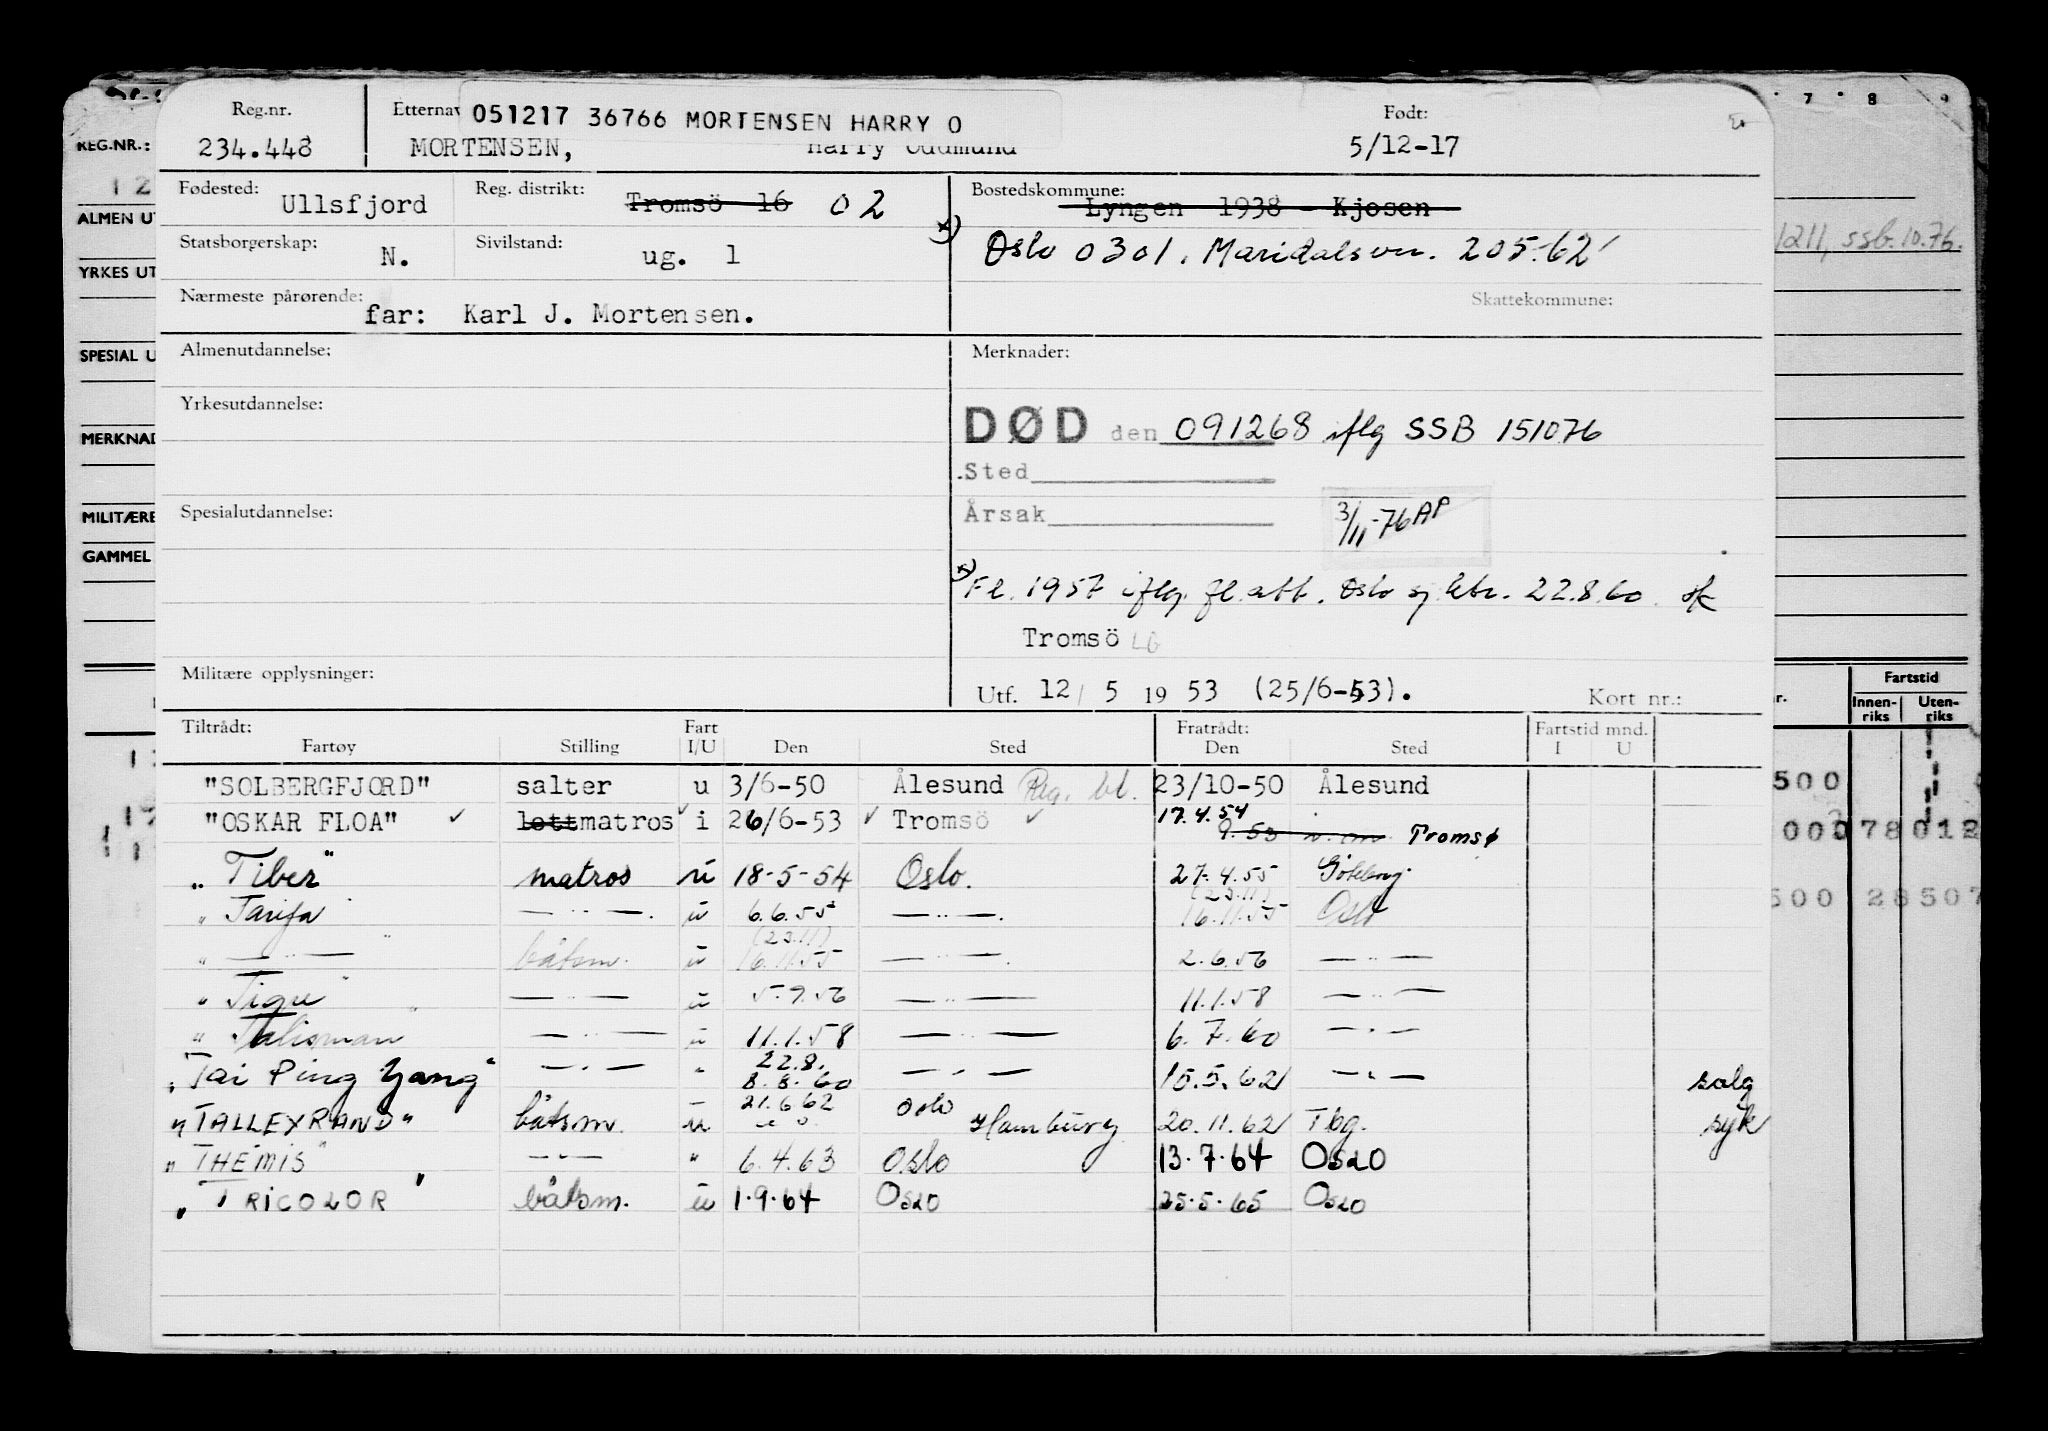 Reg.nr. Etternav 051217 36766 MORTENSEN HARRY O Født:
234.448 MORTENSEN, Harry Oddmund 5/12-17
Fødested: Ullsfjord Reg. distrikt: Tromsö 16 02 Bostedskommune: Lyngen 1938 - Kjosen
Statsborgerskap: N. Sivilstand: ug. 1 x) Oslo 0301. Maridalsvn. 205.-62
Nærmeste pårørende: far: Karl J. Mortensen. Skattekommune:
Almenutdannelse: Merknader:
Yrkesutdannelse: DØD den 091268 iflg SSB 151076
Sted
Spesialutdannelse: Årsak 3/11-76 AP
x) Fl. 1957 iflg. fl.att. Oslo sj.ktr. 22.8.60
Tromsö LG
Militære opplysninger: Utf. 12/5 1953 (25/6-53). Kort nr.:
Tiltrådt: Fart Fratrådt: Fartstid mnd.
Fartøy Stilling I/U Den Sted Den Sted I U
"SOLBERGFJORD" salter u 3/6-50 Ålesund Reg. bl. 23/10-50 Ålesund
"OSKAR FLOA" ✓ lettmatros ✓ i 26/6-53 ✓ Tromsö ✓ 17.4.54 9.53 Tromsø
"Tiber" matros u 18-5-54 Oslo. 27.4.55 Göteborg
"Tarifa" — " —. u 6.6.55 — " —. (23.11) 16.11.55 Oslo
" — " — " båtsm. u (23.11) 16.11.55 — " —. 2.6.56 — " —
"Tigre" — " — u 5.9.56 — " — 11.1.58 — " —
"Talisman" — " — u 11.1.58 — " — 6.7.60 — " —
"Tai Ping Yang" — " — " 22.8. 8.8.60 — " — 15.5.62 — " — salg
"TALLEYRAND" båtsm. u 21.6.62 Oslo Hamburg 20.11.62 Tbg. syk
"THEMIS" — " — " 6.4.63 Oslo 13.7.64 OSLO
"TRICOLOR" båtsm. u 1.9.64 OSLO 25.5.65 OSLO
REG.NR.:
12
ALMEN UT
YRKES UT
SPESIAL U
MERKNAD
MILITÆRE
GAMMEL
7 8 9
1211, ssb. 10.76.
Fartstid
Innen-riks Uten-riks
500
00078012
500 28507